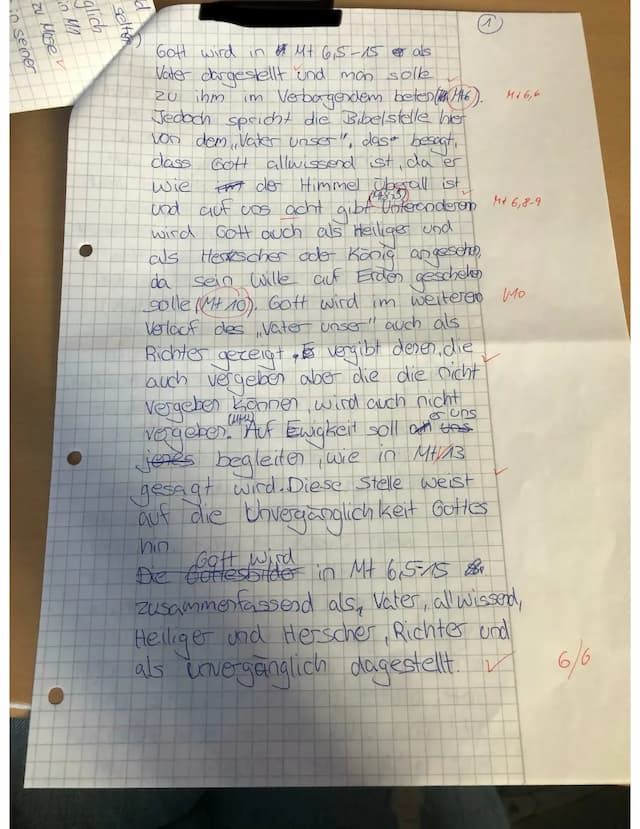 1
Gott wird in Mt 6,5-15 als
Vater dargestellt und man solle
zu ihm im Verborgendem beten (Mt6).
Mt 6,6
Jedoch spricht die Bibelstelle hier
von dem „Vater unser", das besagt,
dass Gott allwissend ist, da er
wie der Himmel überall ist
und auf uns acht gibt. Unteranderem
Mt 6,8-9
wird Gott auch als Heiliger und
als Herrscher oder König angesehen,
da sein Wille auf Erden geschehen
solle (Mt 10). Gott wird im weiteren
V10
Verlauf des „Vater unser" auch als
Richter gezeigt. Er vergibt denen, die
auch vergeben aber die die nicht
vergeben können, wird auch nicht
vergeben. Auf Ewigkeit soll er uns
begleiten, wie in Mt 13
gesagt wird. Diese Stelle weist
auf die Unvergänglichkeit Gottes
hin
Die Gottesbilder Gott wird in Mt 6,5-15
zusammenfassend als, Vater, allwissend,
Heiliger und Herscher, Richter und
als unvergänglich dagestellt.
6/6
glich
in Mt
zu Mose
in seiner